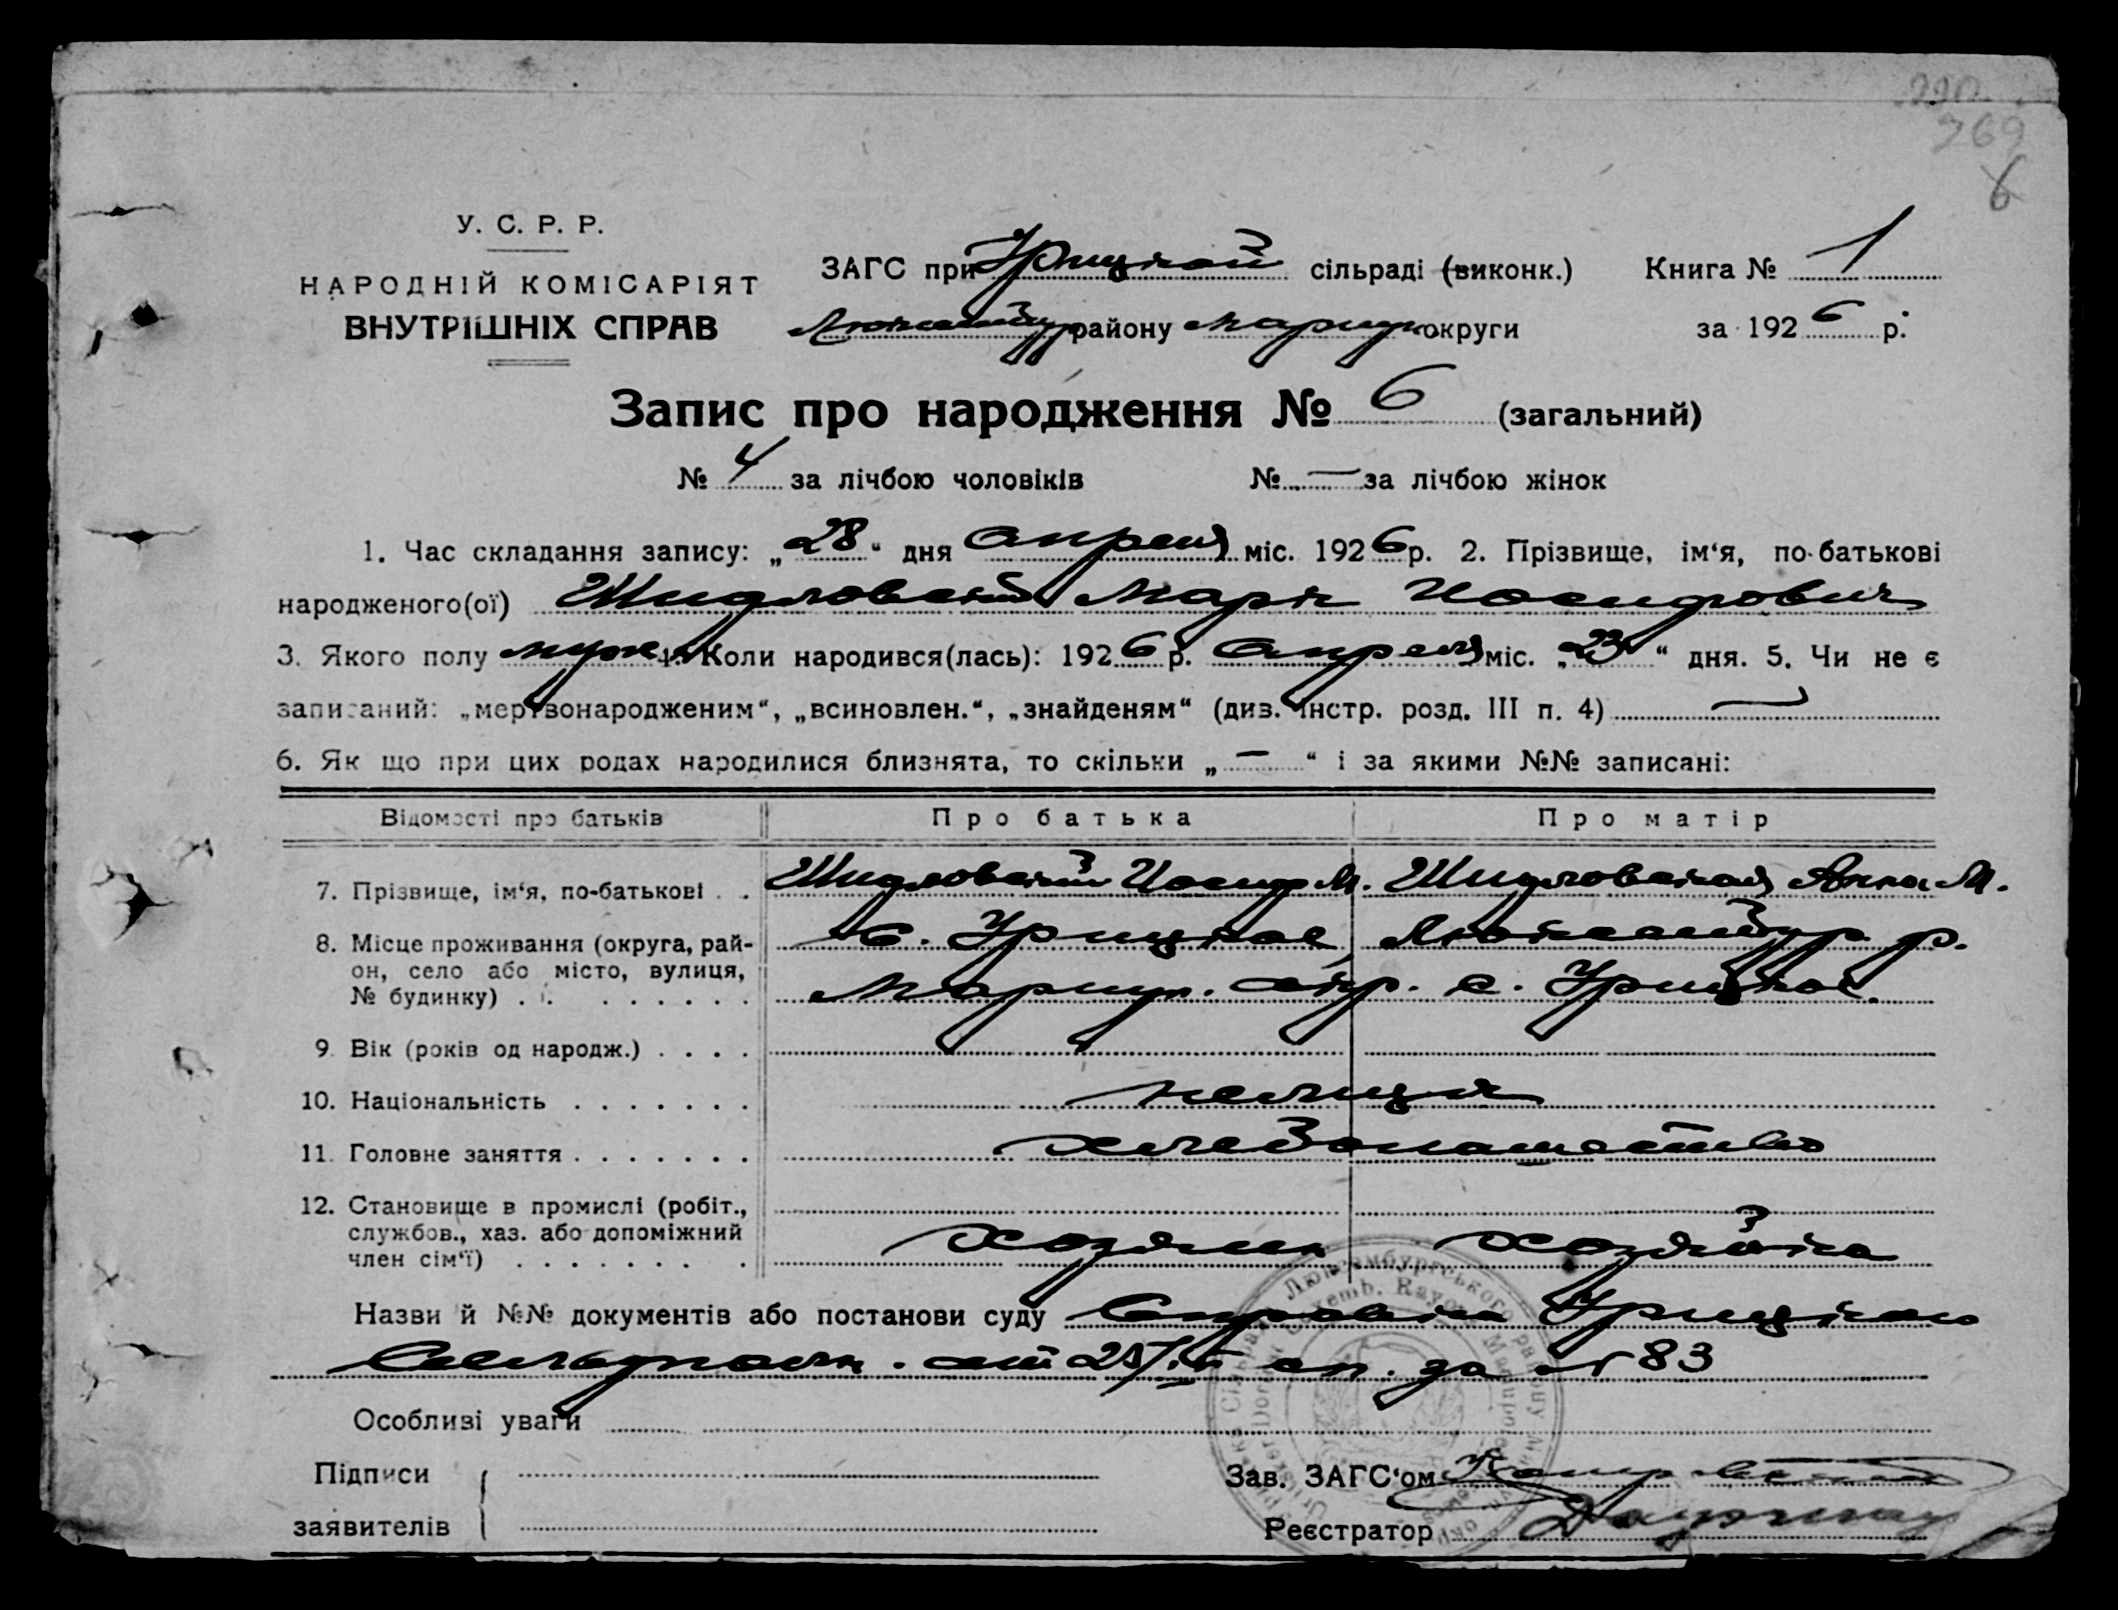 769
6
У. С. Р. Р.
НАРОДНІЙ КОМІСАРІЯТ
ВНУТРІШНІХ СПРАВ
ЗАГС при Урицкой сільраді (виконк.) Книга № 1
Люксембур району Мариуп округи за 1926 р.
Запис про народження № 6 (загальний)
№ 4 за лічбою чоловіків № — за лічбою жінок
1. Час складання запису: „28“ дня апреля міс. 1926 р. 2. Прізвище, ім‘я, по-батькові
народженого(ої) Шидловский Марк Иосифович
3. Якого полу муж 4. Коли народився(лась): 1926 р. апреля міс. „23“ дня. 5. Чи не є
записаний: „мертвонародженим“, „всиновлен.“, „знайденям“ (див. інстр. розд. III п. 4) —
6. Як що при цих родах народилися близнята, то скільки „—“ і за якими №№ записані:
Відомості про батьків Про батька Про матір
7. Прізвище, ім‘я, по-батькові . . Шидловский Иосиф М. Шидловская Анна М.
8. Місце проживання (округа, рай-
он, село або місто, вулиця,
№ будинку) . . . . . . . .
с. Урицкое Люксембур р.
Мариуп. окр. с. Урицкое.
9. Вік (років од народж.) . . . .
10. Національність . . . . . . . немцы
11. Головне заняття . . . . . . . хлебопашество
12. Становище в промислі (робіт.,
службов., хаз. або допоміжний
член сім‘ї) . . . . . . . .
хозяин хозяйка
Назви й №№ документів або постанови суду Справка Урицкого
от 25/IV за № 83
Особливі уваги
Підписи
заявителів
Зав. ЗАГС‘ом
Реєстратор